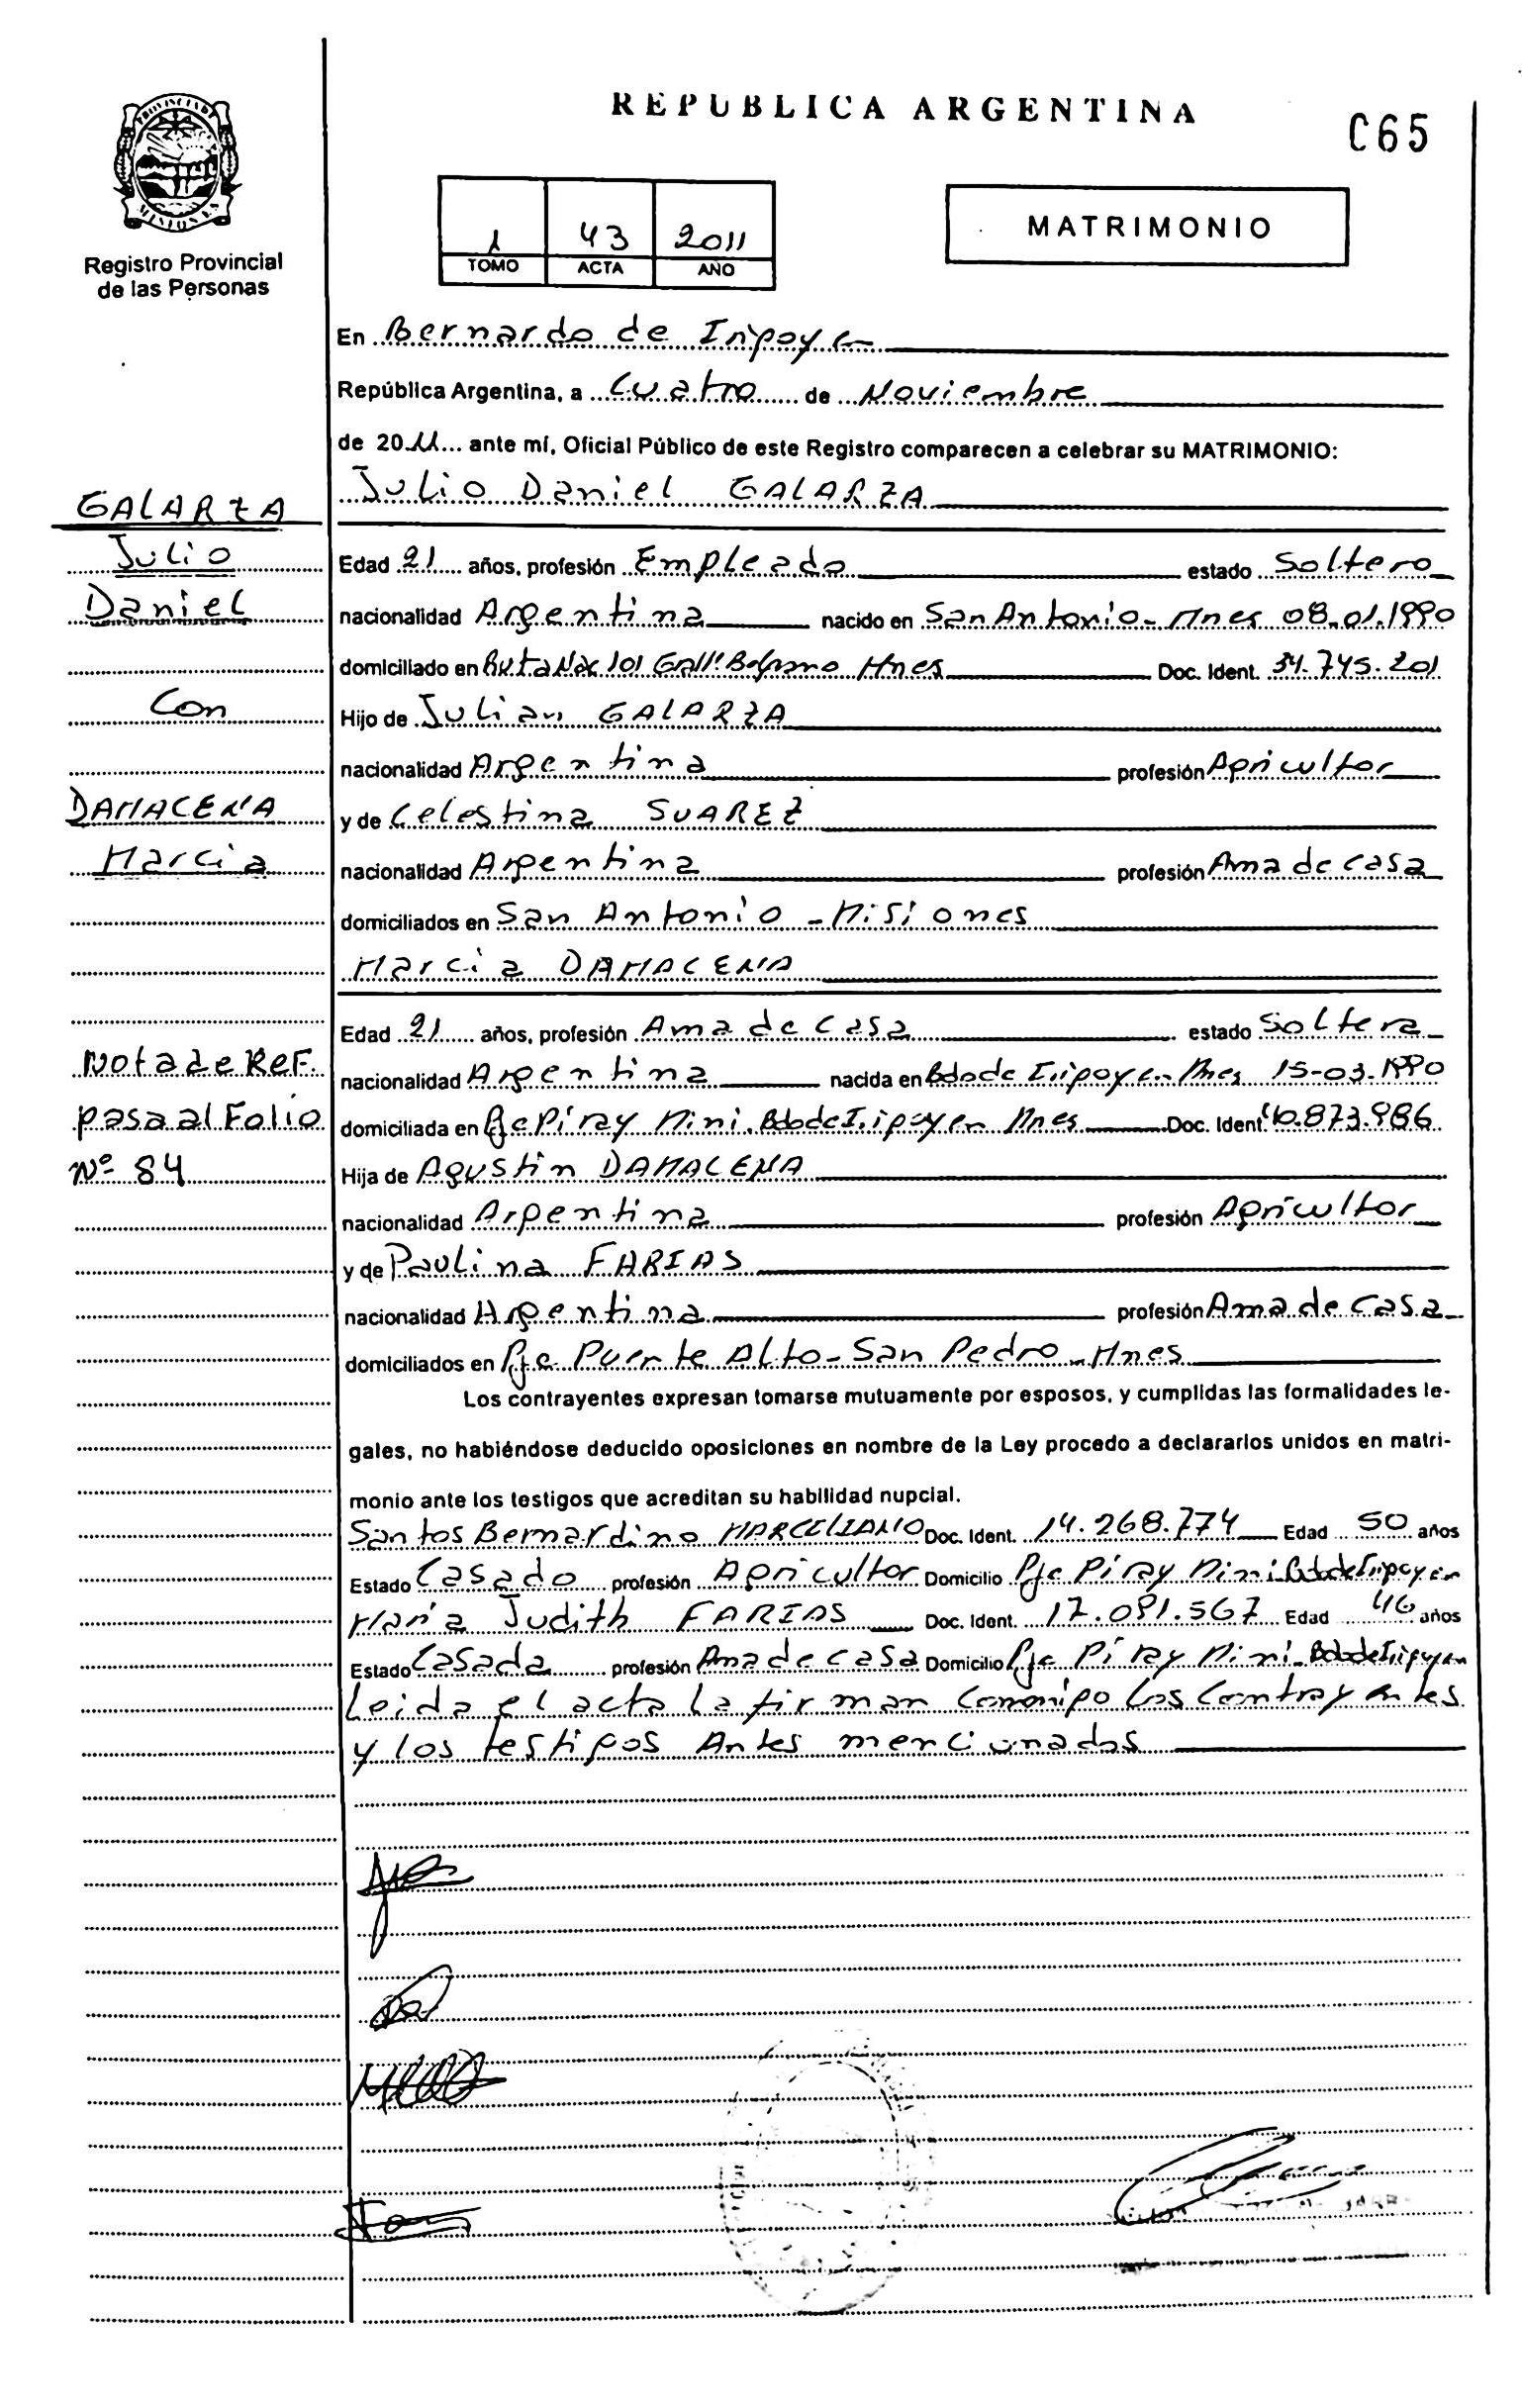 REPUBLICA ARGENTINA
C65
PROVINCIA DE
MISIONES
Registro Provincial
de las Personas
1 43 2011
TOMO ACTA AÑO
MATRIMONIO
En Bernardo de Irigoyen
República Argentina, a Cuatro de Noviembre
de 2011 ante mí, Oficial Público de este Registro comparecen a celebrar su MATRIMONIO:
Julio Daniel GALARZA
GALARZA
Julio
Daniel
Con
DAMACENA
Marcia
Nota de REF.
pasa al Folio
Nº 84
Edad 21 años, profesión Empleado estado Soltero
nacionalidad Argentina nacido en San Antonio - Mnes 08.01.1990
domiciliado en Ruta Nac 101 Gral Belgrano Mnes Doc. Ident. 34.745.201
Hijo de Julian GALARZA
nacionalidad Argentina profesión Agricultor
y de Celestina SUAREZ
nacionalidad Argentina profesión Ama de casa
domiciliados en San Antonio - Misiones
Marcia DAMACENA
Edad 21 años, profesión Ama de casa estado Soltera
nacionalidad Argentina nacida en Bdo de Irigoyen Mnes 15-03-1990
domiciliada en Pje Piray Mini. Bdo de Irigoyen Mnes Doc. Ident. 40.873.986
Hija de Agustin DAMACENA
nacionalidad Argentina profesión Agricultor
y de Paulina FARIAS
nacionalidad Argentina profesión Ama de casa
domiciliados en Pje Puente Alto - San Pedro - Mnes
Los contrayentes expresan tomarse mutuamente por esposos, y cumplidas las formalidades le-
gales, no habiéndose deducido oposiciones en nombre de la Ley procedo a declararlos unidos en matri-
monio ante los testigos que acreditan su habilidad nupcial.
Santos Bernardino MARCELIANO Doc. Ident. 14.268.774 Edad 50 años
Estado Casado profesión Agricultor Domicilio Pje Piray Mini Bdo de Irigoyen
Maria Judith FARIAS Doc. Ident. 17.091.567 Edad 46 años
Estado Casada profesión Ama de casa Domicilio Pje Piray Mini - Bdo de Irigoyen
Leida el acta la firman Conmigo los Contrayentes
y los testigos Antes mencionados